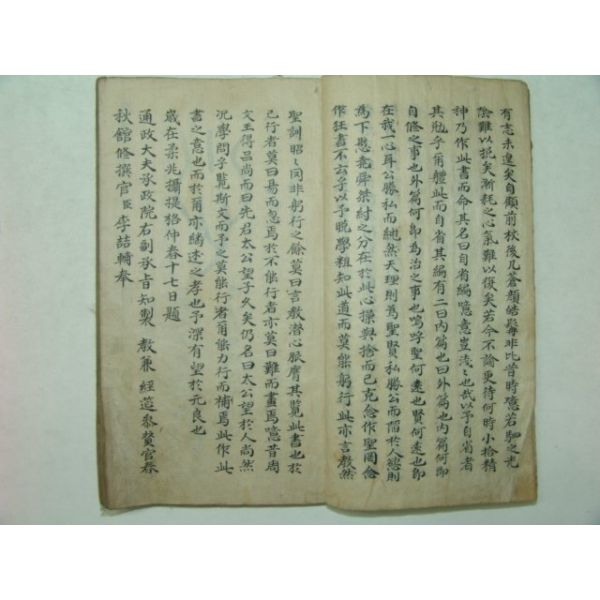 有志未遑矣自顧前校後凡蒼顔皓髮非比昔時噫若馳之光
陰難以挽矣漸耗之心氣難以復矣若今不諭更待何時小拾精
神乃作此書而命其名曰自省編噫意豈淺淺也哉以予自省者
其勉乎爾體此而自省其編有二曰內篇也曰外篇也內篇何即
自修之事也外篇何即為治之事也嗚呼聖何遠也賢何遠也即
在我一心耳公勝私而純然天理則為聖賢私勝公而陷於人慾則
為下愚堯舜桀紂之分在於此心操與捨而已克念作聖罔念
作狂書不云乎以予晚學粗知此道而莫能躬行此亦言教然
聖訓昭昭同非躬行之餘莫曰言教潛心服膺其覧此書也於
已行者莫曰易而忽焉於不能行者亦莫曰難而畫焉噫昔周
文王得呂尚而曰先君太公望子久矣仍名曰太公望於人尚然
況學問乎覧斯文而予之莫能行者爾能力行而補焉此作此
書之意也而於爾亦繼述之孝也予深有望於元良也
歲在柔兆攝提格仲春十七日題
通政大夫承政院右副承旨知製 教兼 經筵參贊官春
秋館修撰官臣李喆輔奉